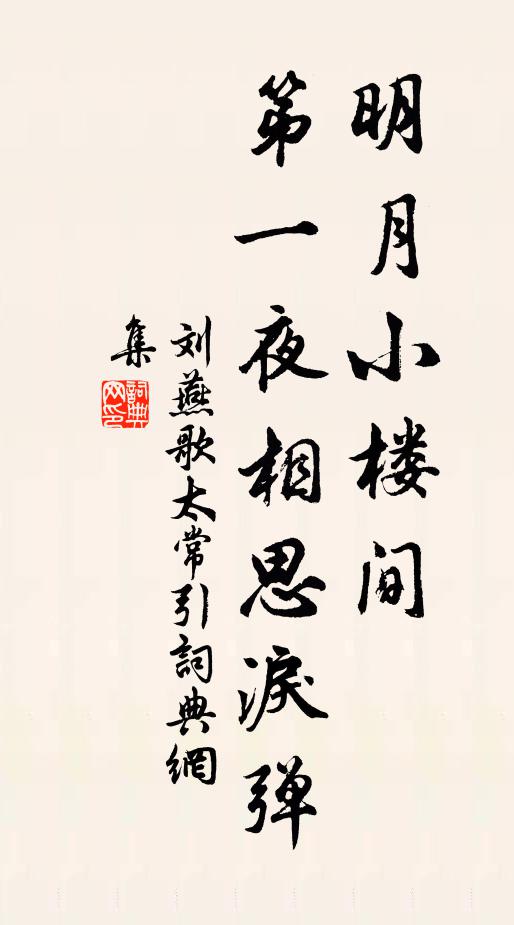 明月小楼间
第一夜相思淚弹
刘燕歌太常引詞典網
集
詞典
网印